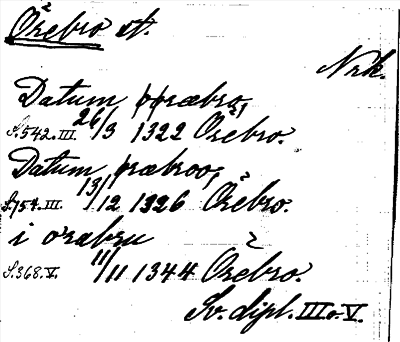 Örebro st.
Nrk.
Datum øræbro,
S. 542. III. 26/3 1322 Örebro.
Datum øræbroo,
S. 154. III. 13/12 1326 Örebro.
i orabru
S. 368. V. 11/11 1344 Örebro.
Sv. dipl. III o. V.